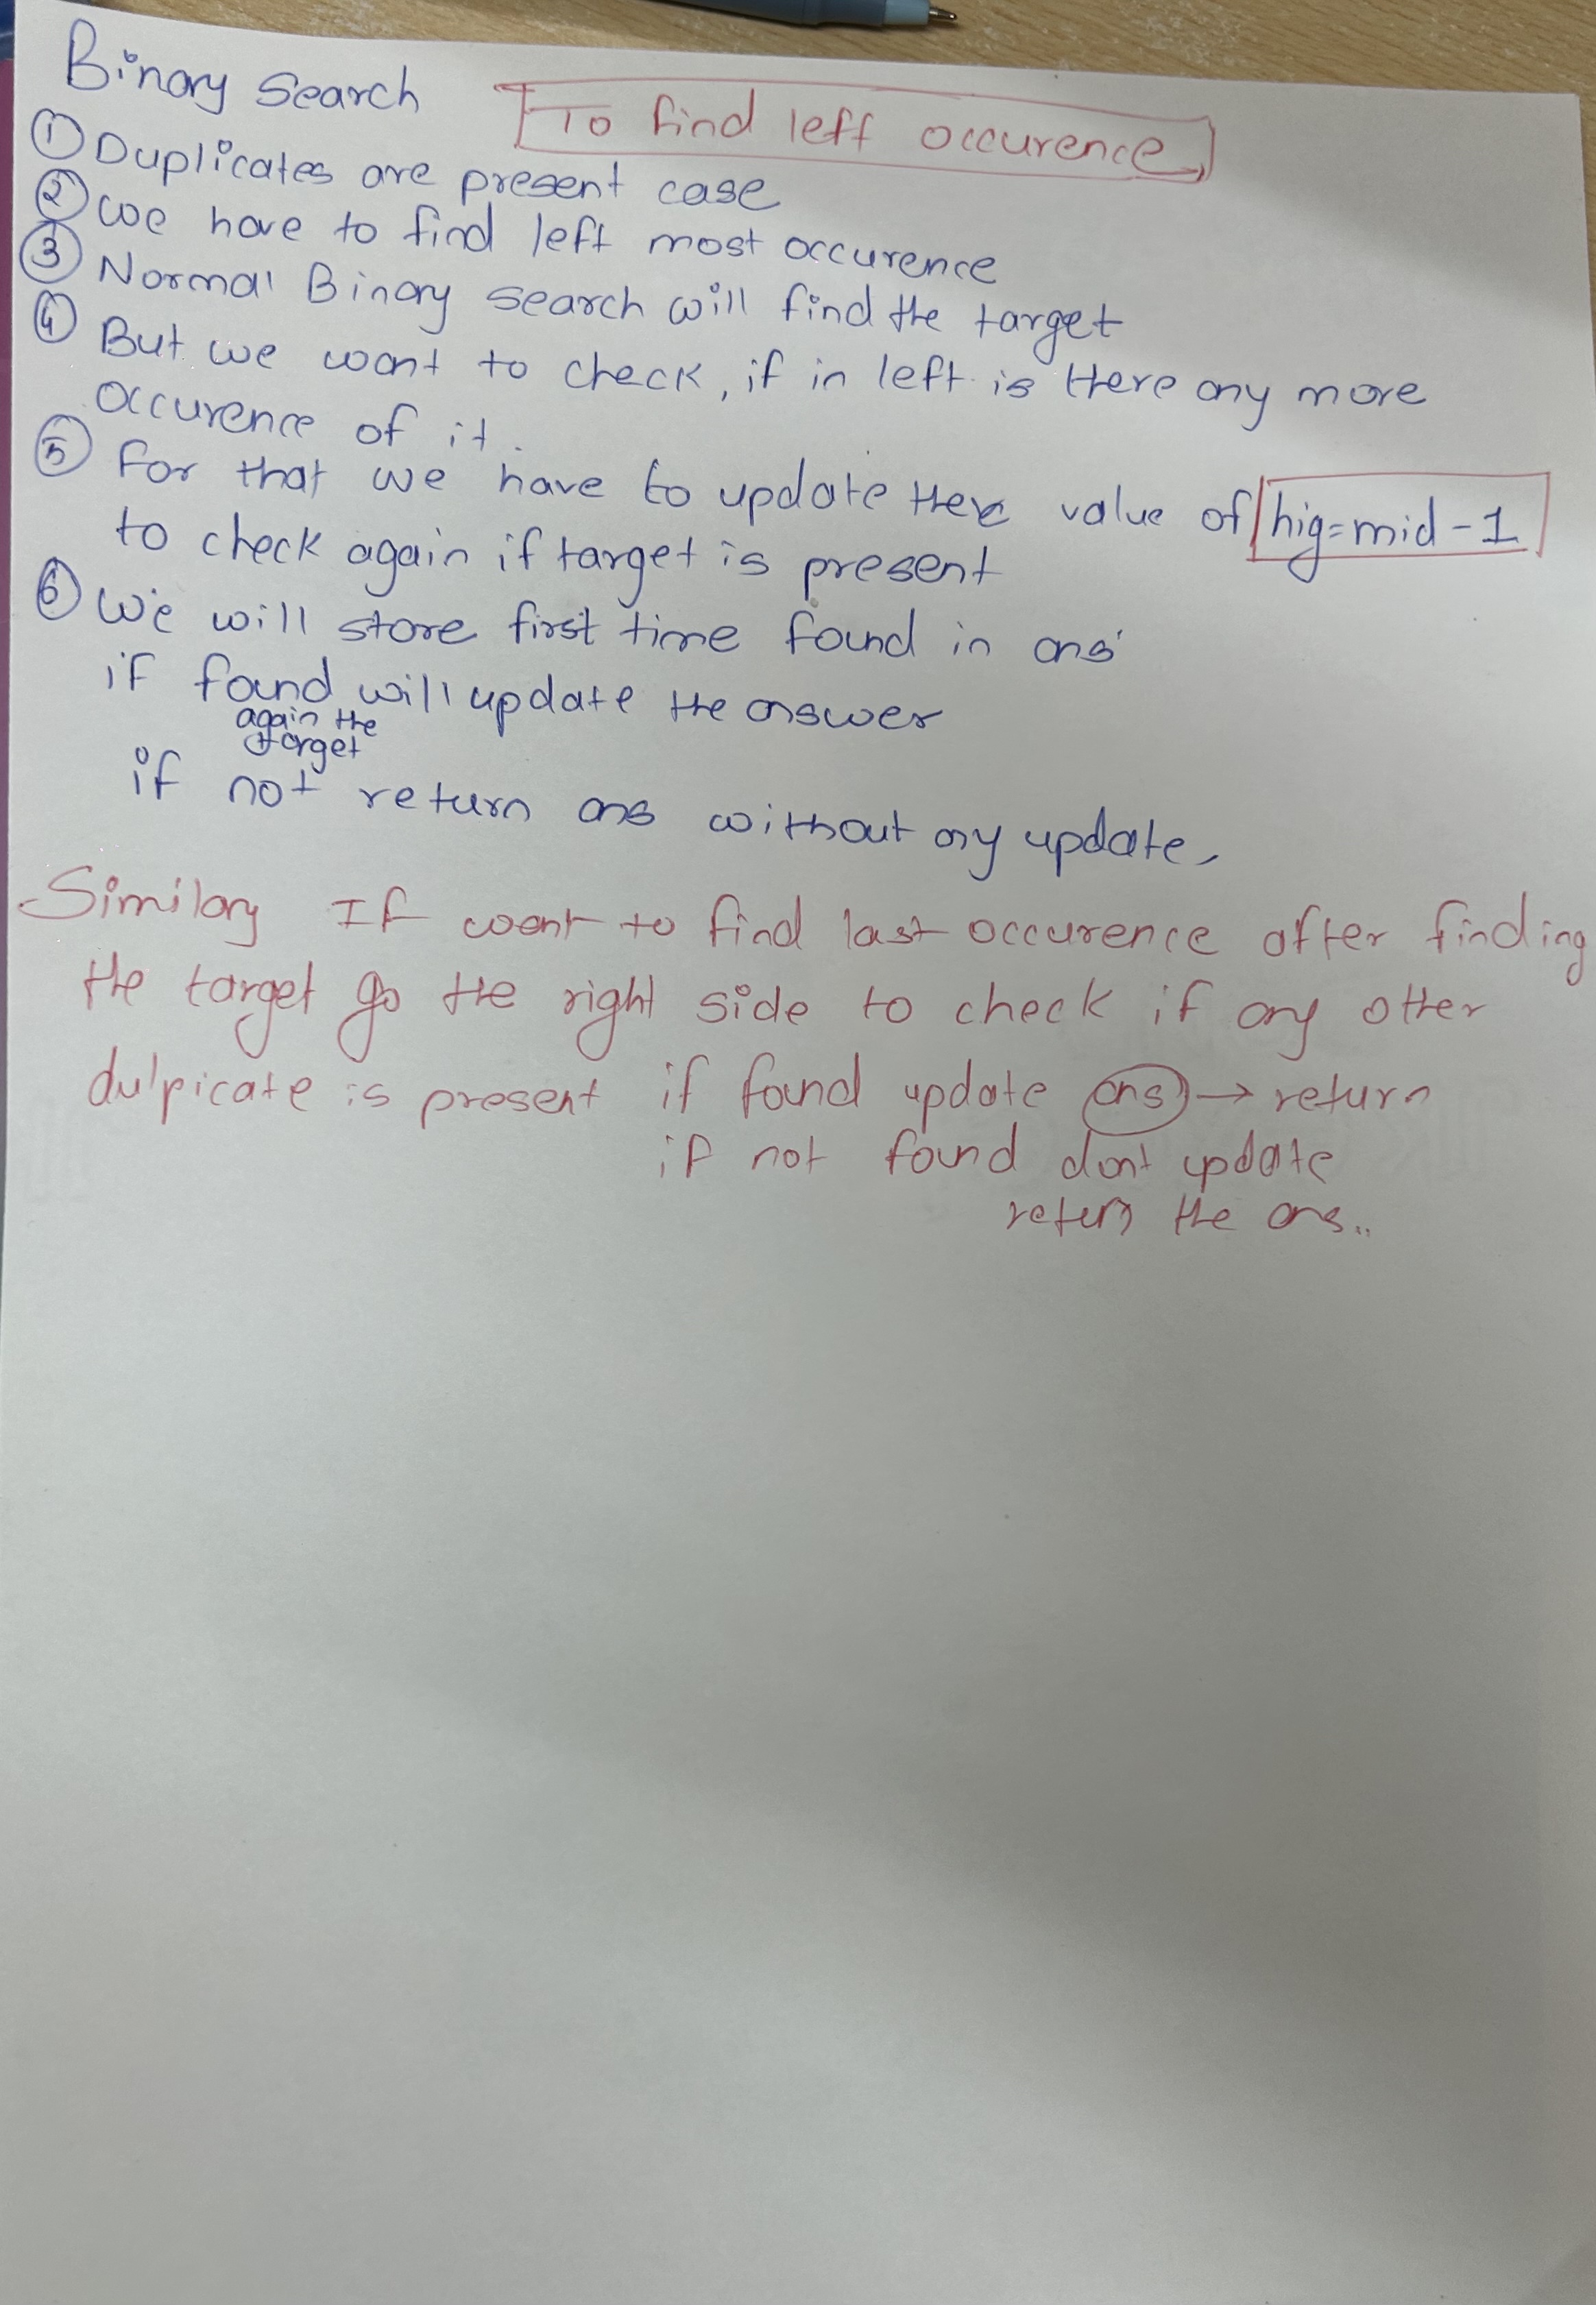 Binary Search
To find left occurence
① Duplicates are present case
② we have to find left most occurence
③ Normal Binary search will find the target
④ But we want to check, if in left is there any more
occurence of it.
⑤ For that we have to update the value of hig=mid-1
to check again if target is present
⑥ We will store first time found in ans
if found will update the answer
again the
target
if not return ans without any update
Similary If want to find last occurence after finding
the target go the right side to check if any other
dulpicate is present if found update ans → return
if not found dont update
return the ans..